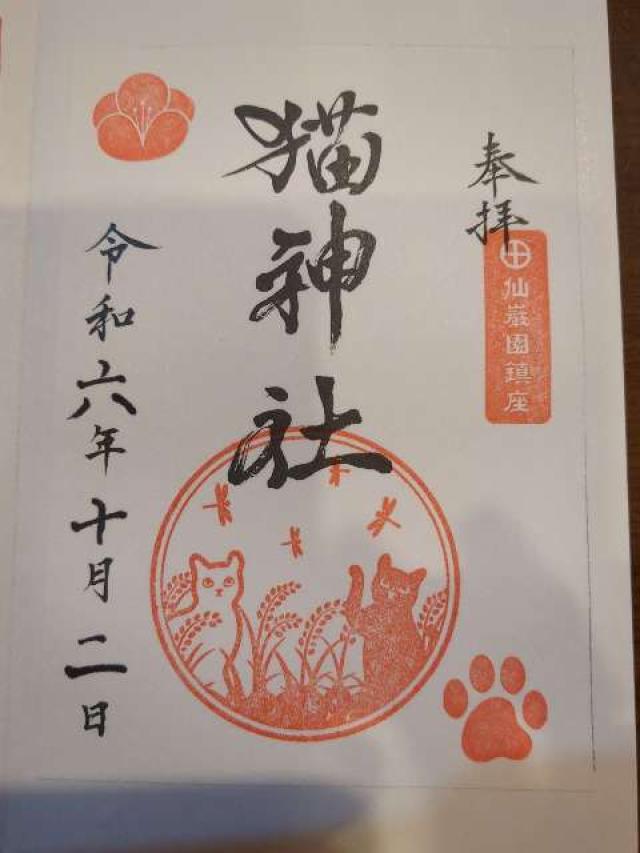 奉拝
仙巌園鎮座
猫神社
令和六年十月二日